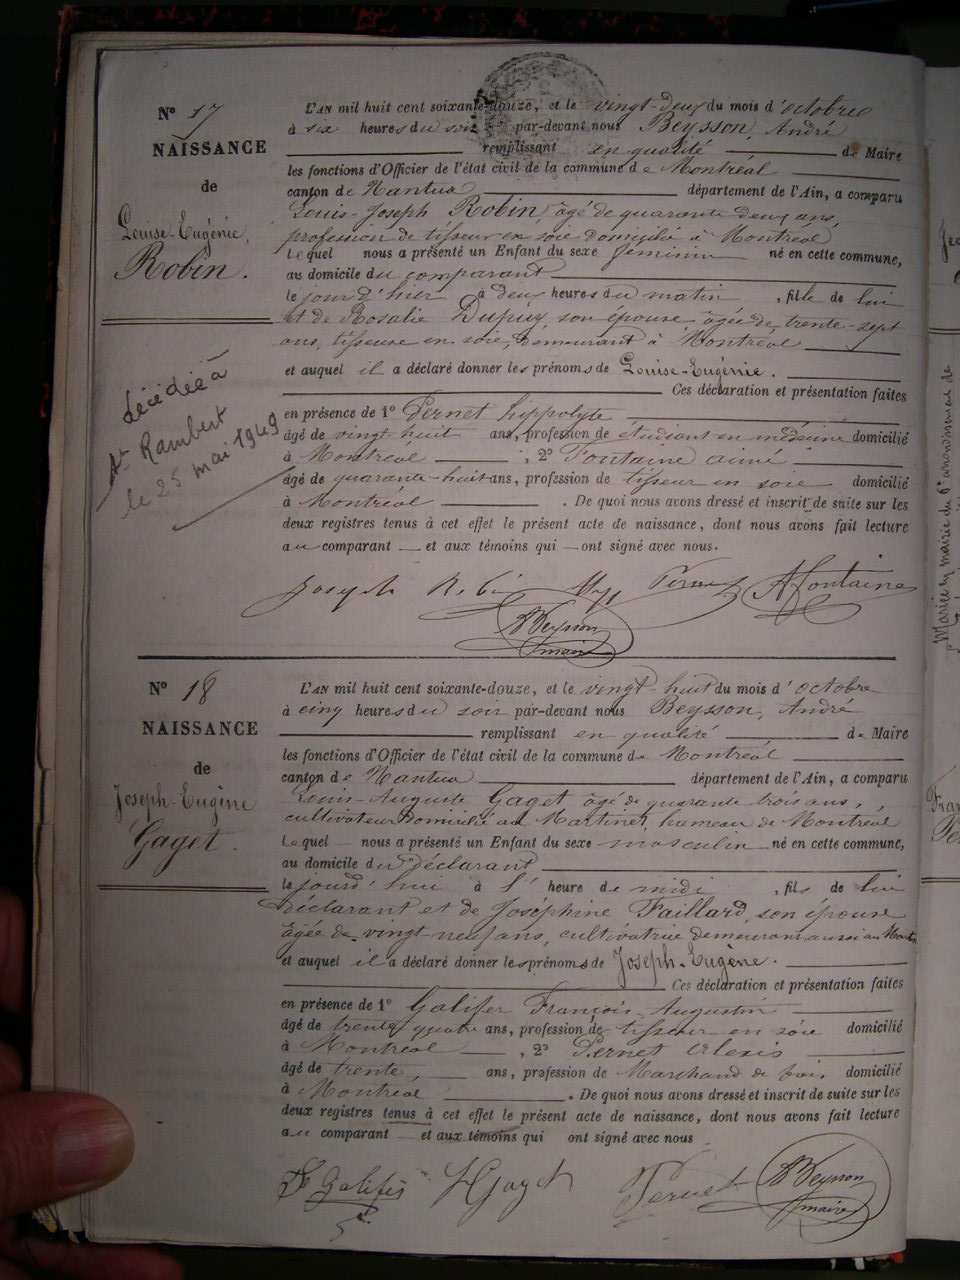 N° 17
NAISSANCE
de
Louise-Eugénie,
Robin.
décédée à
St Rambert
le 25 mai 1949
L'AN mil huit cent soixante-douze, et le vingt-deux du mois d'octobre
à six heures du soir par-devant nous Beysson, André
remplissant en qualité de Maire
les fonctions d'Officier de l'état civil de la commune de Montréal
canton de Nantua département de l'Ain, a comparu
Louis-Joseph Robin, âgé de quarante deux ans,
profession de tisseur en soie domicilié à Montréal
Lequel nous a présenté un Enfant du sexe féminin né en cette commune,
au domicile du comparant
le jour d'hier à deux heures du matin, fille de lui
et de Rosalie Dupuy, son épouse, âgée de trente-sept
ans, tisseuse en soie, demeurant à Montréal
et auquel il a déclaré donner les prénoms de Louise-Eugénie.
Ces déclaration et présentation faites
en présence de 1° Pernet hippolyte
âgé de vingt huit ans, profession de étudiant en médecine domicilié
à Montréal ; 2° Fontaine aimé
âgé de quarante-huit ans, profession de tisseur en soie domicilié
à Montréal. De quoi nous avons dressé et inscrit de suite sur les
deux registres tenus à cet effet le présent acte de naissance, dont nous avons fait lecture
au comparant et aux témoins qui ont signé avec nous.
Joseph Robin Hyp Pernet A Fontaine
Beysson
maire
N° 18
NAISSANCE
de
Joseph-Eugène
Gaget.
L'AN mil huit cent soixante-douze, et le vingt-huit du mois d'octobre
à cinq heures du soir par-devant nous Beysson, André
remplissant en qualité de Maire
les fonctions d'Officier de l'état civil de la commune de Montréal
canton de Nantua département de l'Ain, a comparu
Louis-Auguste Gaget âgé de quarante trois ans,
cultivateur domicilié au Martinet, hameau de Montréal
Lequel nous a présenté un Enfant du sexe masculin né en cette commune,
au domicile du déclarant
le jourd'hui à l'heure de midi, fils de lui
déclarant et de Joséphine Faillard, son épouse
âgée de vingt-neuf ans, cultivatrice demeurant aussi au
et auquel il a déclaré donner les prénoms de Joseph-Eugène.
Ces déclaration et présentation faites
en présence de 1° Galifer François-Augustin
âgé de trente quatre ans, profession de tisseur en soie domicilié
à Montréal, 2° Pernet Alexis
âgé de trente, ans, profession de Marchand de bois domicilié
à Montréal. De quoi nous avons dressé et inscrit de suite sur les
deux registres tenus à cet effet le présent acte de naissance, dont nous avons fait lecture
au comparant et aux témoins qui ont signé avec nous
Galifer Gaget Pernet Beysson
maire
Mariée en mairie du 6e arrondissement de